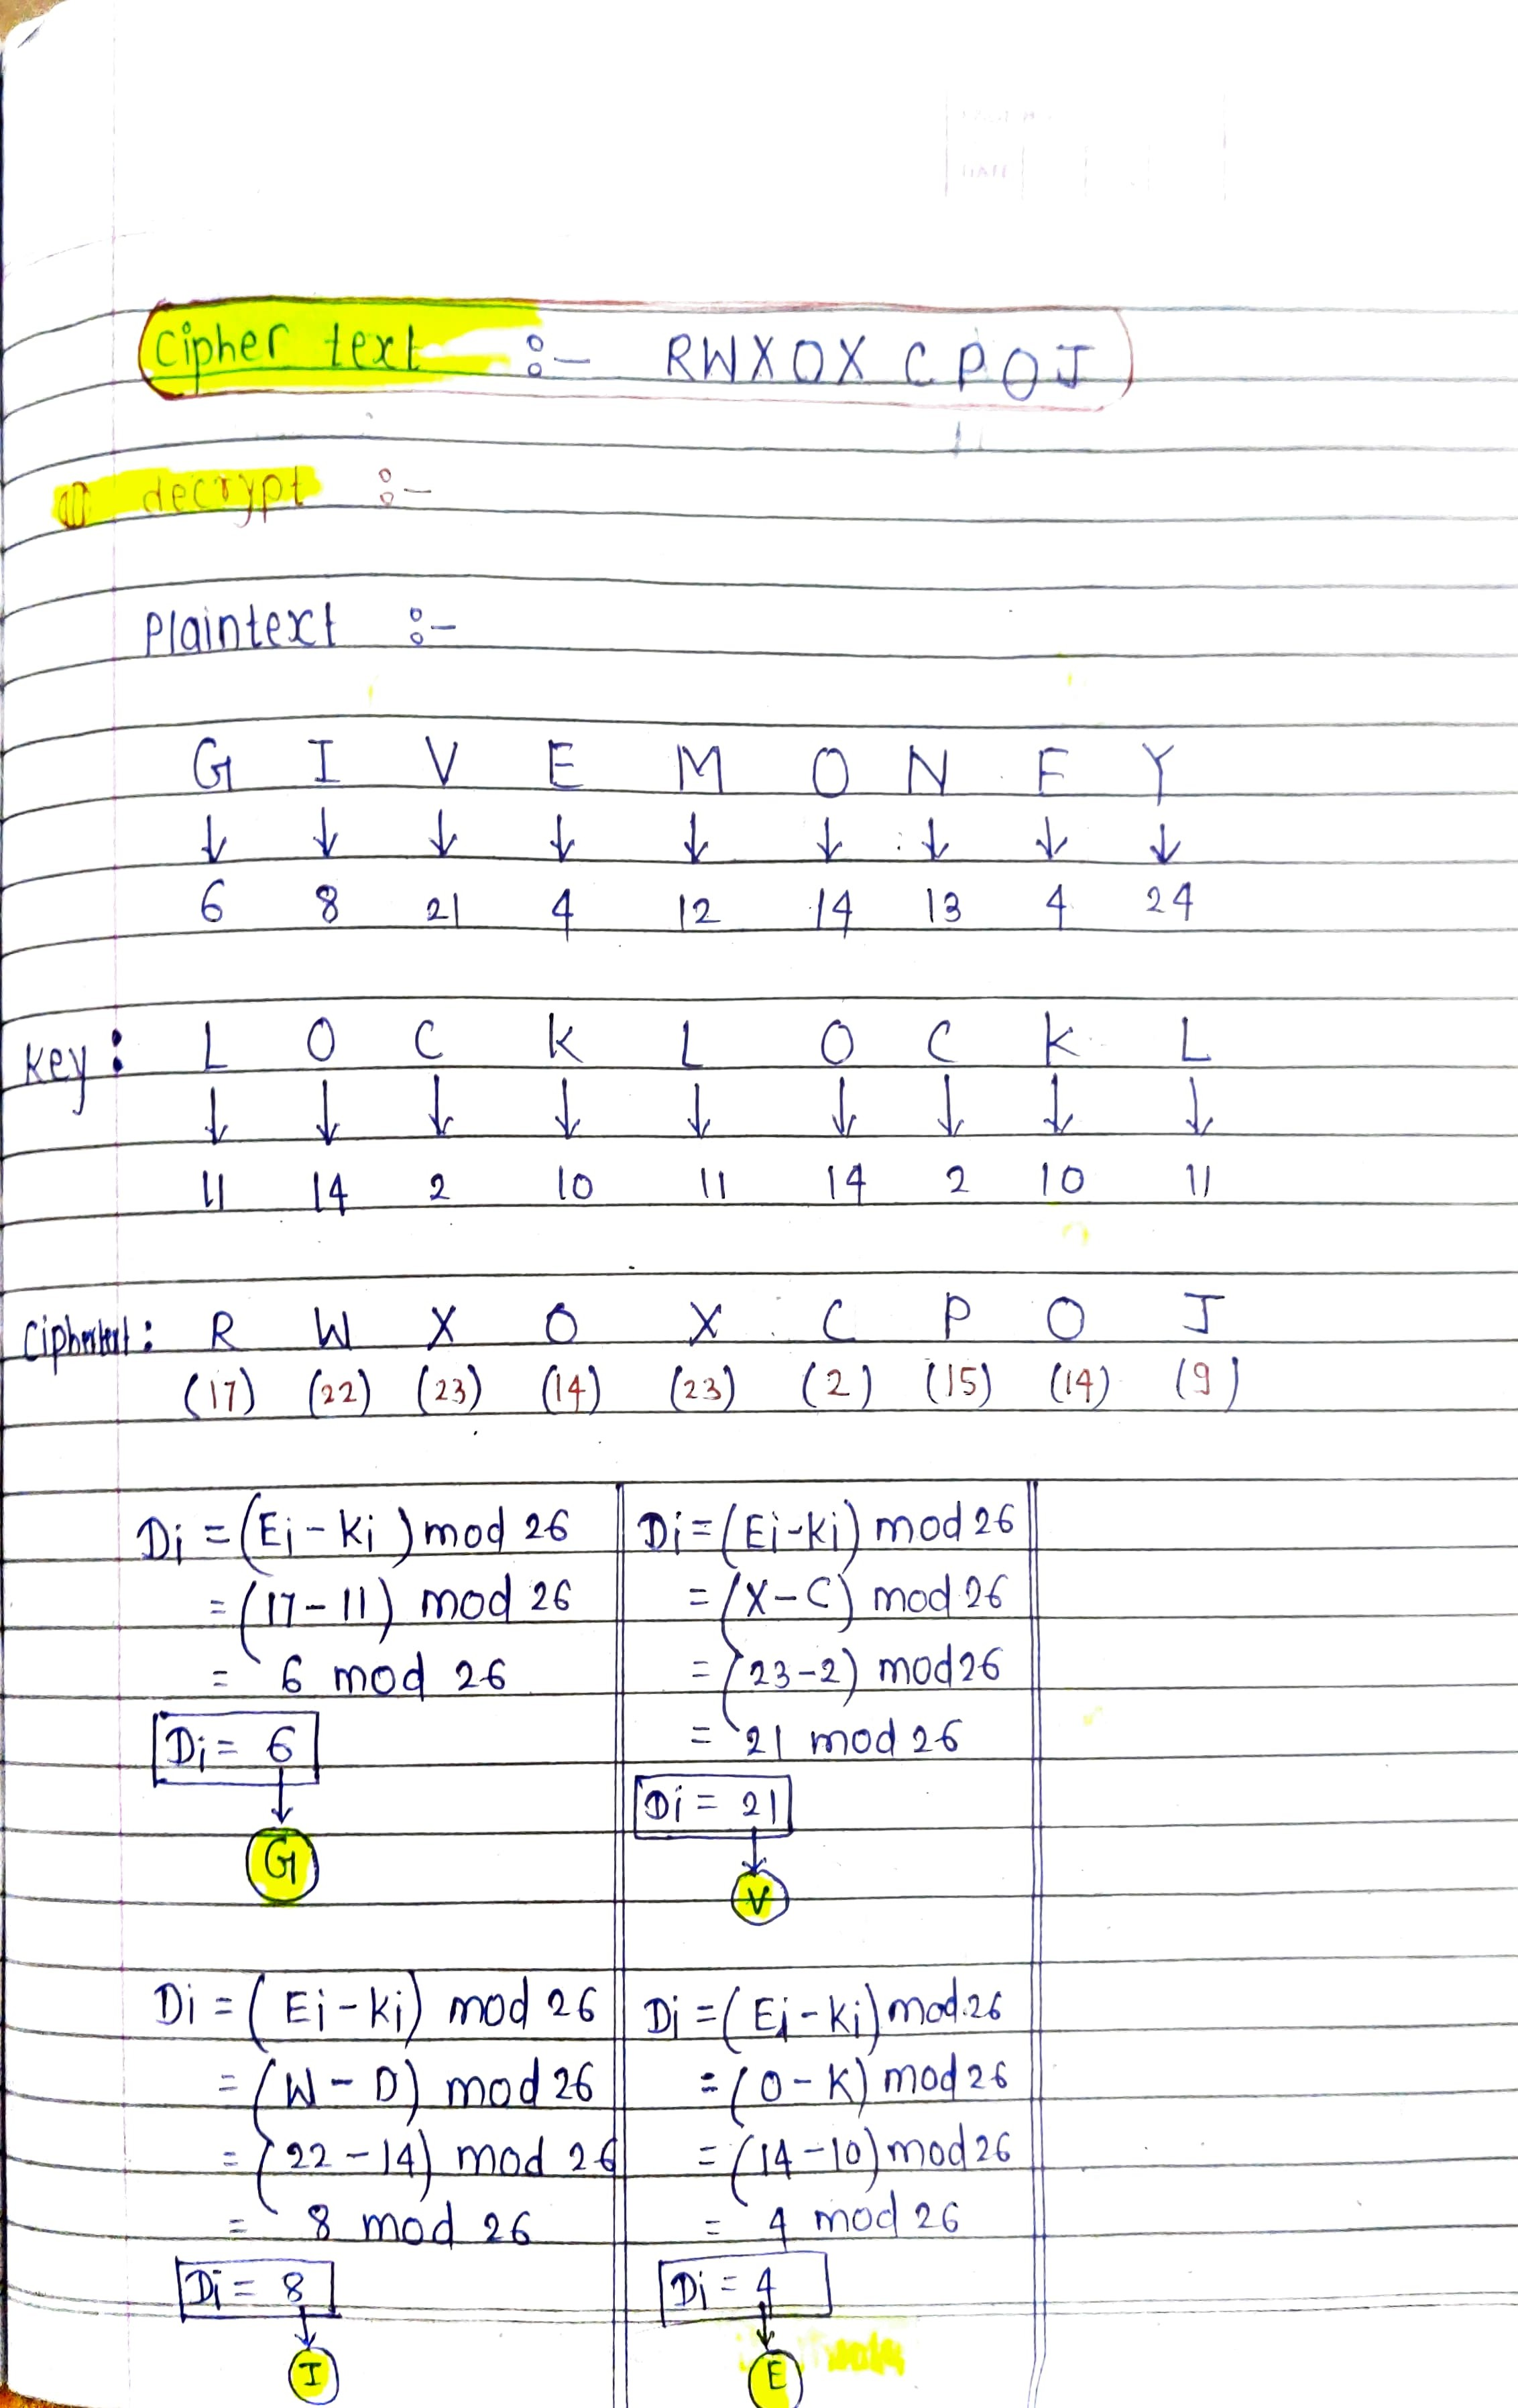 Cipher text :- RWXOX CPOJ
decrypt :-
Plaintext :-
G I V E M O N E Y
↓ ↓ ↓ ↓ ↓ ↓ ↓ ↓ ↓
6 8 21 4 12 14 13 4 24
Key : L O C K L O C K L
↓ ↓ ↓ ↓ ↓ ↓ ↓ ↓ ↓
11 14 2 10 11 14 2 10 11
Ciphertext : R W X O X C P O J
(17) (22) (23) (14) (23) (2) (15) (14) (9)
Di = (Ei - Ki) mod 26
= (17 - 11) mod 26
= 6 mod 26
Di = 6
↓
G
Di = (Ei - Ki) mod 26
= (X - C) mod 26
= (23 - 2) mod 26
= 21 mod 26
Di = 21
↓
V
Di = (Ei - Ki) mod 26
= (W - O) mod 26
= (22 - 14) mod 26
= 8 mod 26
Di = 8
↓
I
Di = (Ei - Ki) mod 26
= (O - K) mod 26
= (14 - 10) mod 26
= 4 mod 26
Di = 4
↓
E